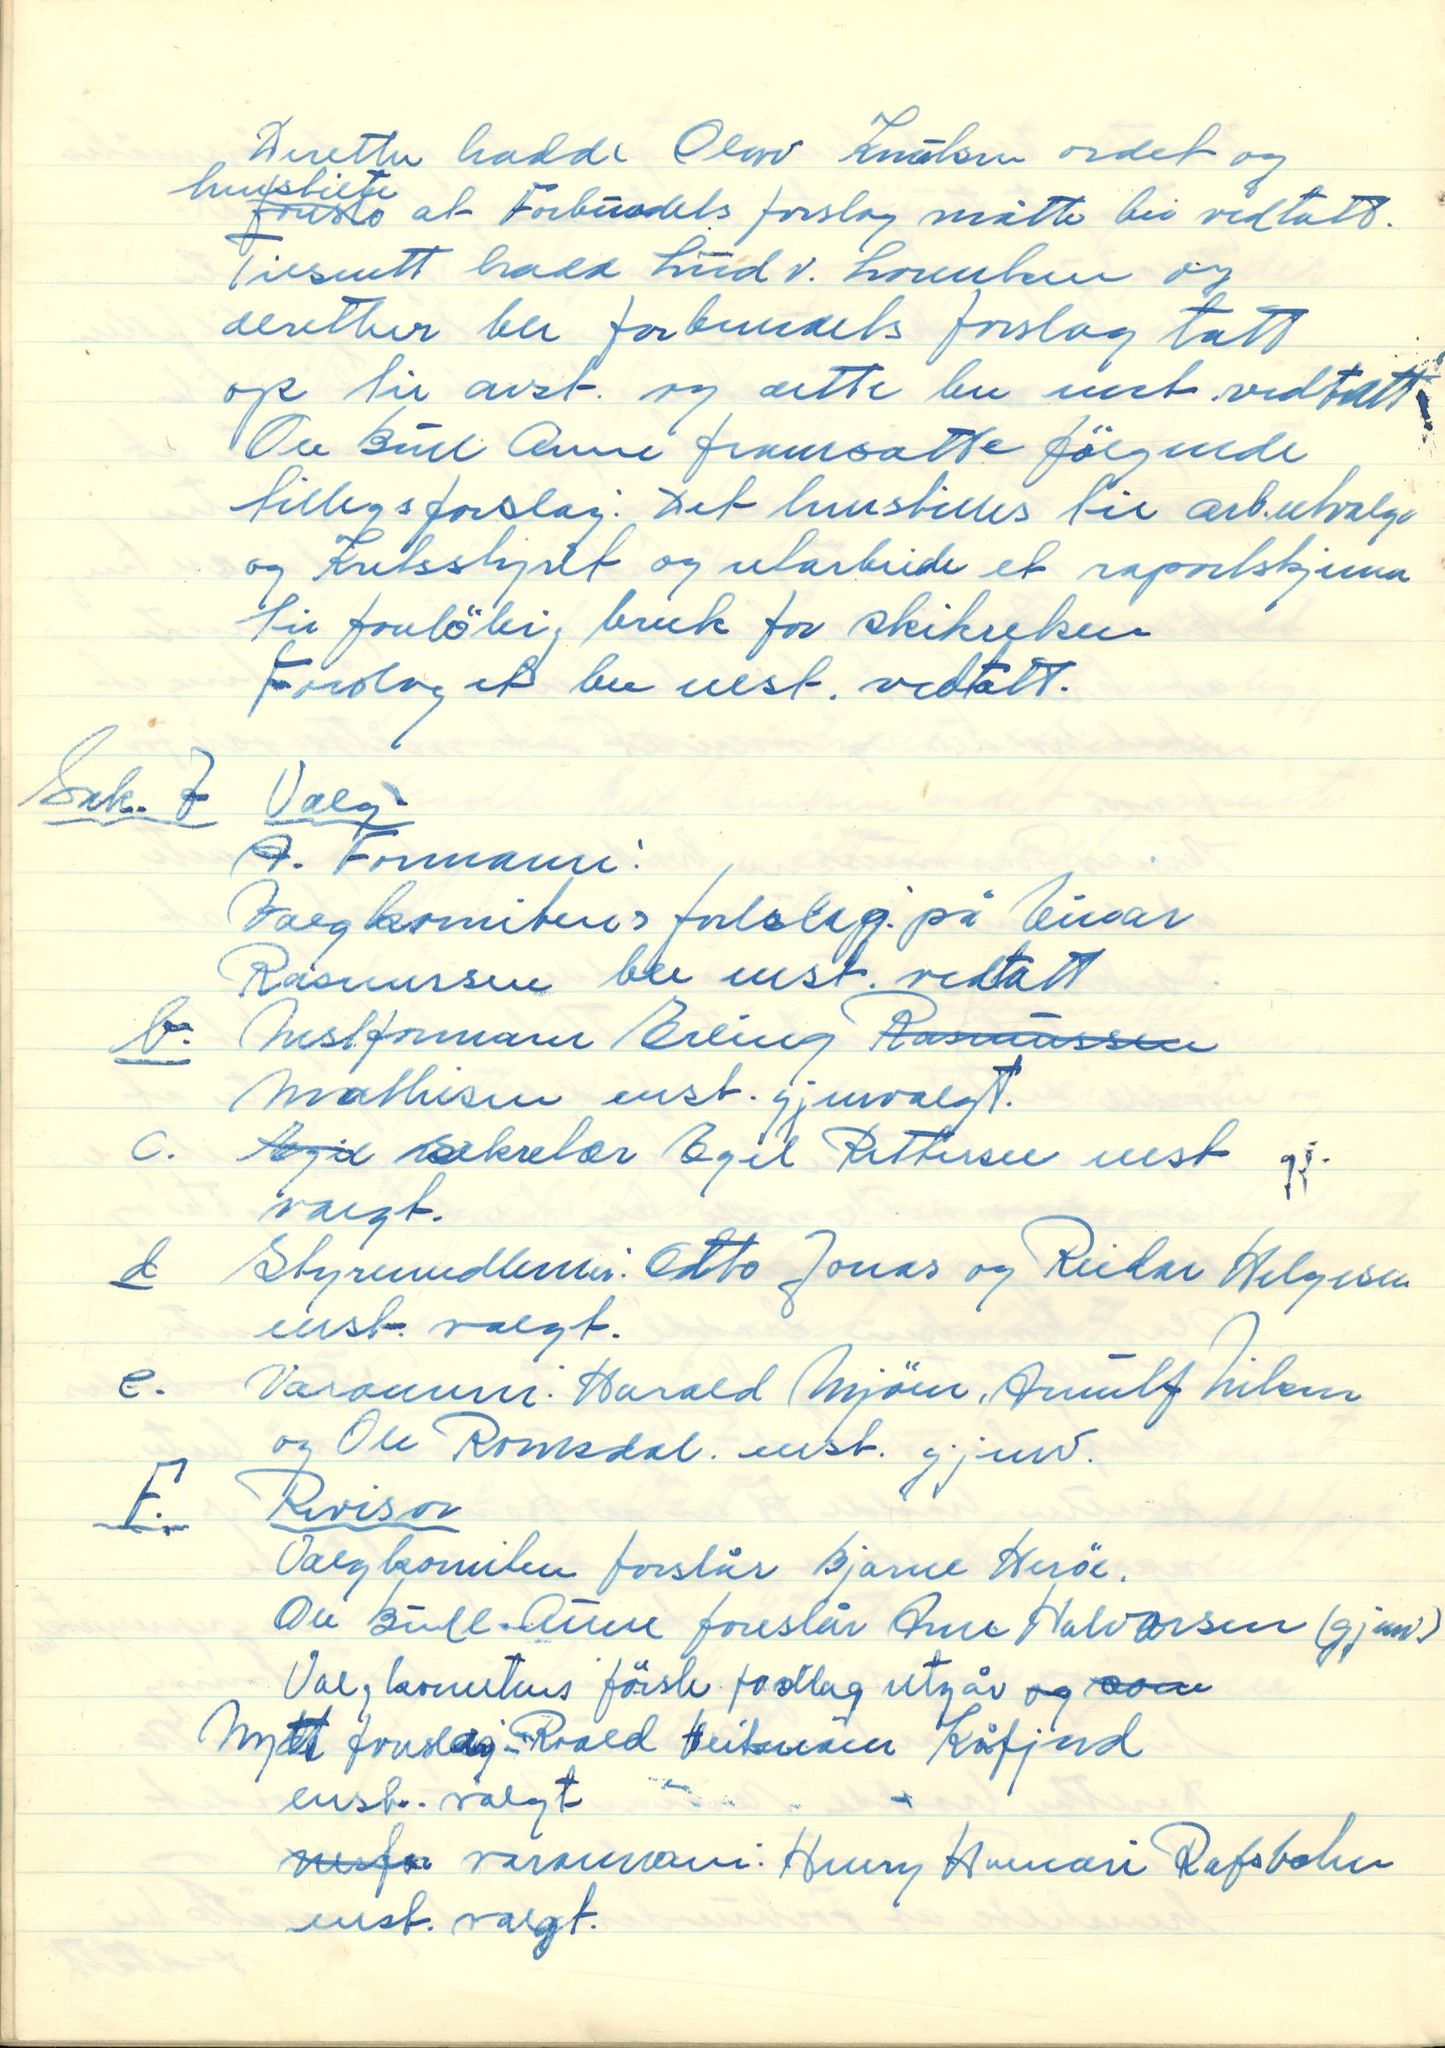 Deretter hadde Olav Knutsen ordet og
henstilte
foreslo at Forbundets forslag måtte bli vedtatt.
Tilslutt hadde Ludv. Lorentsen og
deretter ble forbundets forslag tatt
op til avst. og dette ble enst. vedtatt.
Ole Bull Aune framsatte følgende
tilleggsforslag: Det henstilles til arb.utvalge
og Kretsstyret og utarbeide et raportskjema
til foreløbig bruk for skikretsen
Forslaget ble enst. vedtatt.
Sak. 7 Valg
A. Formann:
Valgkomiteens forslag på Einar
Rasmussen ble enst. vedtatt
b. Nestformann Erling Rasmussen
Mathisen enst. gjenvalgt.
c. Egil sekretær Egil Pettersen enst gj.
valgt.
d Styremedlemmer: Otto Jonas og Reidar Helgesen
enst. valgt.
e. Varamenn: Harald Mjöen, Arnulf Nilsen
og Ole Romsdal. enst. gjenv.
F. Revisor
Valgkomiteen forslår Bjarne Heröe.
Ole Bull-Aune foreslår Arne Halvorsen (gjenv.)
Valgkomiteens förste forslag utgår og som
Nytt forslag: Roald Kåfjord
enst. valgt
nesfor varamann: Henry Rafsbotn
enst. valgt.